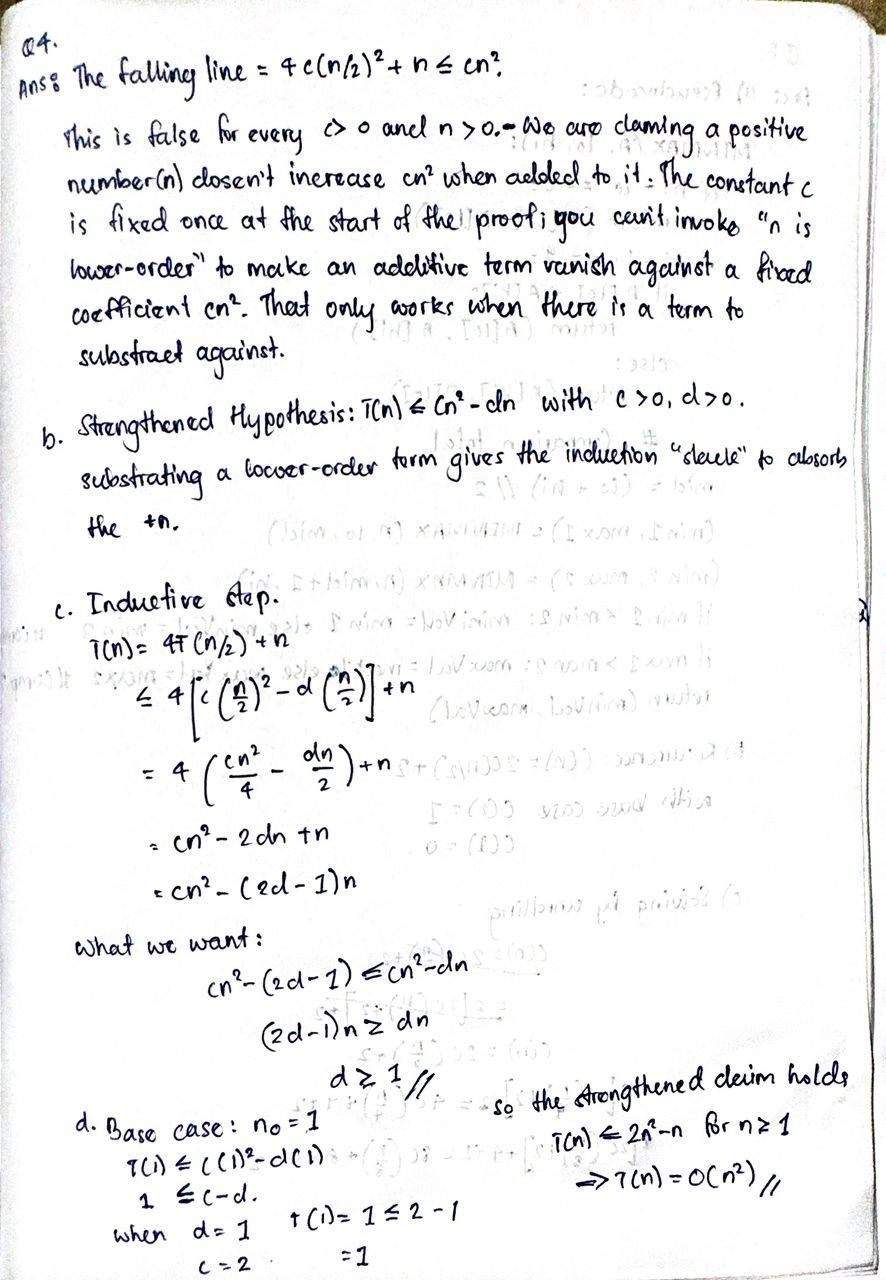 Q4.
Ans: The falling line = 4c(n/2)² + n ≤ cn².
This is false for every c> 0 and n > 0. - We are claming a positive
number(n) dosen't increase cn² when added to it. The constant c
is fixed once at the start of the proof; you can't invoke "n is
lower-order" to make an additive term vanish against a fixed
coefficient cn². That only works when there is a term to
substract against.
b. Strengthened Hypothesis: T(n) ≤ Cn² - dn with c >0, d>0.
substrating a lower-order term gives the induction "slack" to absorb
the +n.
c. Inductive step.
T(n)= 4T(n/2) + n
≤ 4[c(n/2)² - d(n/2)] + n
= 4(cn²/4 - dn/2) + n
= cn² - 2dn + n
= cn² - (2d - 1)n
What we want:
cn² - (2d - 1) ≤ cn² - dn
(2d-1)n ≥ dn
d ≥ 1 //
d. Base case: n₀ = 1
T(1) ≤ c(1)² - d(1)
1 ≤ c-d.
when d= 1 T(1)= 1 ≤ 2 - 1
c = 2 = 1
so the strengthened claim holds
T(n) ≤ 2n²-n for n≥ 1
=> T(n) = O(n²) //